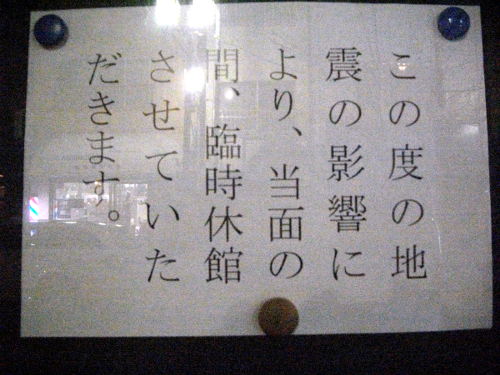 この度の地
震の影響に
より、当面の
間、臨時休館
させていた
だきます。